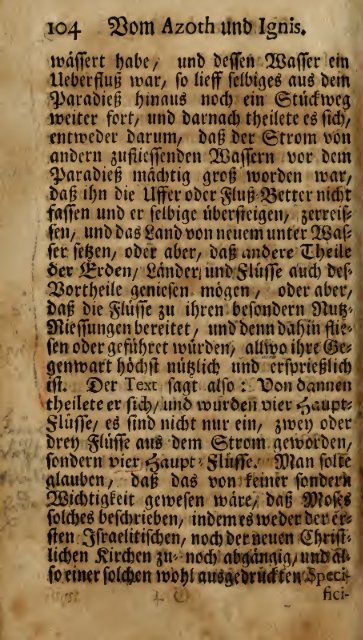 104 Vom Azoth und Ignis.
wässert habe, und dessen Wasser ein
Ueberfluß war, so lieff selbiges aus dem
Paradieß hinaus noch ein Stückweg
weiter fort, und darnach theilete es sich,
entweder darum, daß der Strom von
andern zufliessenden Wassern vor dem
Paradieß mächtig groß worden war,
daß ihn die Uffer oder Fluß-Better nicht
fassen und er selbige übersteigen, zerreis-
sen, und das Land von neuem unter Was-
ser setzen, oder aber, daß andere Theile
der Erden, Länder, und Flüsse auch des
Vortheils geniesen mögen, oder aber,
daß die Flüsse zu ihren besondern Nutz-
Niessungen bereitet, und denn dahin flies-
sen oder geführet würden, allwo ihre Ge-
genwart höchst nützlich und ersprießlich
ist. Der Text sagt also: Von dannen
theilete er sich, und wurden vier Haupt-
Flüsse, es sind nicht nur ein, zwey oder
drey Flüsse aus dem Strom geworden,
sondern vier Haupt-Flüsse. Man solte
glauben, daß das von keiner sondern
Wichtigkeit gewesen wäre, daß Moses
solches beschrieben, indem es weder der er-
sten Israelitischen, noch der neuen Christ-
lichen Kirchen zu- noch abgängig, und al-
so einer solchen wohl ausgedruckten Speci-
fici-